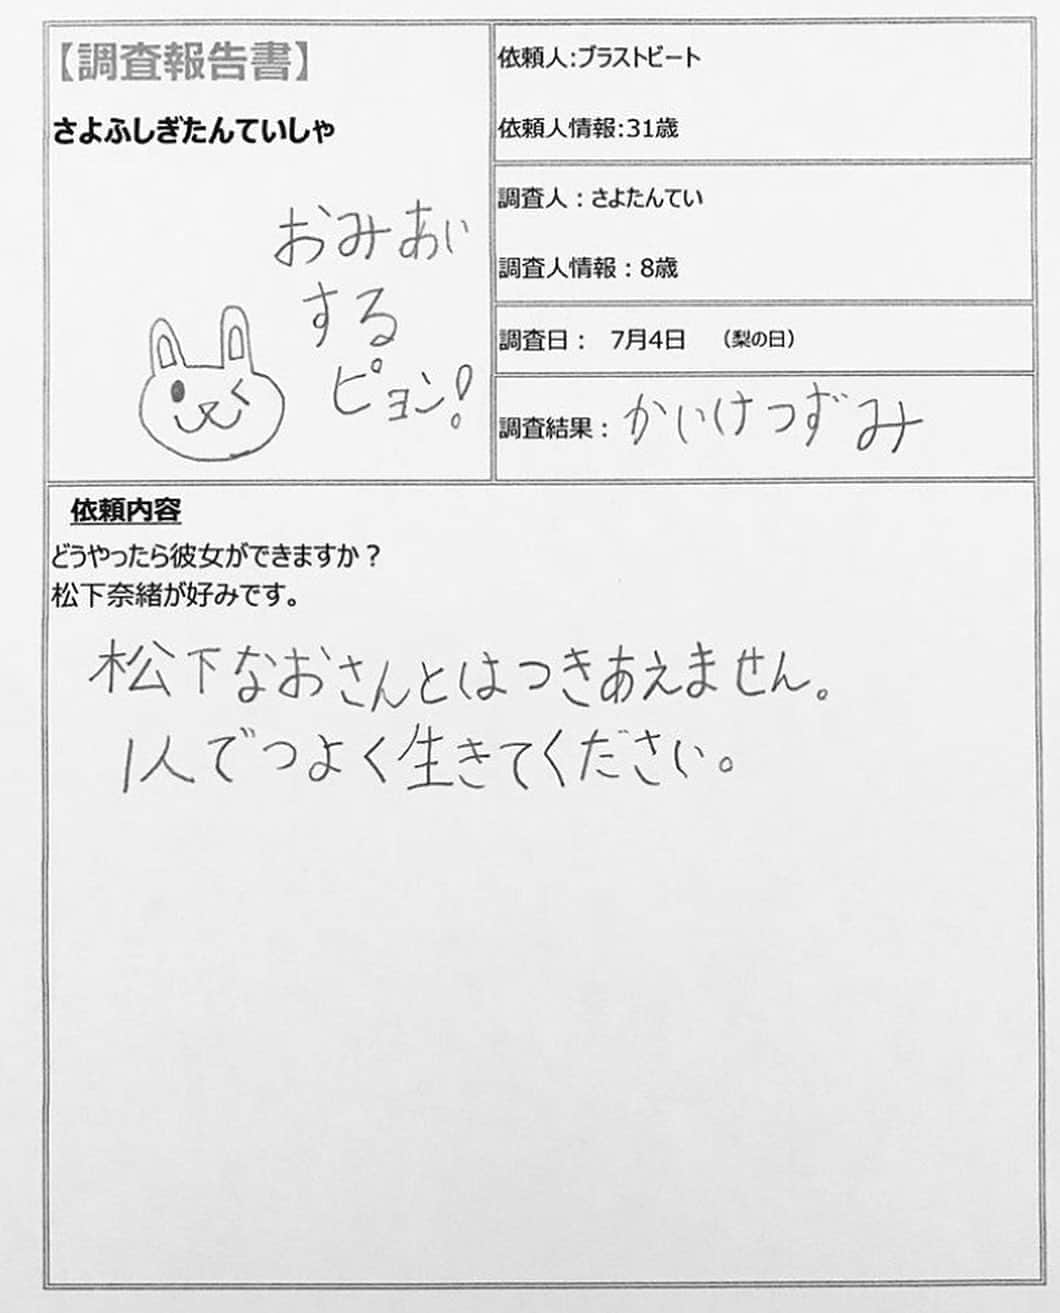 【調査報告書】
さよふしぎたんていしゃ
おみあい
する
ピョン!
依頼人:ブラストビート
依頼人情報:31歳
調査人：さよたんてい
調査人情報：8歳
調査日： 7月4日 （梨の日）
調査結果： かいけつずみ
依頼内容
どうやったら彼女ができますか？
松下奈緒が好みです。
松下なおさんとはつきあえません。
1人でつよく生きてください。